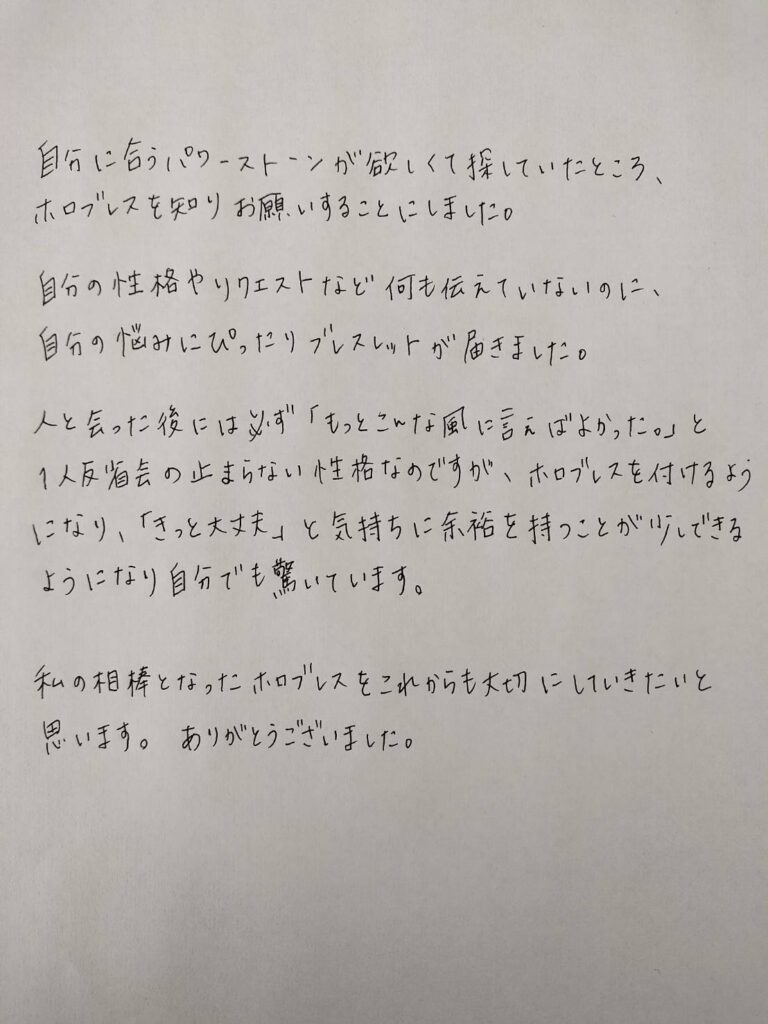 自分に合うパワーストーンが欲しくて探していたところ、
ホロブレスを知りお願いすることにしました。
自分の性格やリクエストなど何も伝えていないのに、
自分の悩みにぴったりブレスレットが届きました。
人と会った後には必ず「もっとこんな風に言えばよかった。」と
1人反省会の止まらない性格なのですが、ホロブレスを付けるよう
になり、「きっと大丈夫」と気持ちに余裕を持つことが少しできる
ようになり自分でも驚いています。
私の相棒となったホロブレスをこれからも大切にしていきたいと
思います。 ありがとうございました。